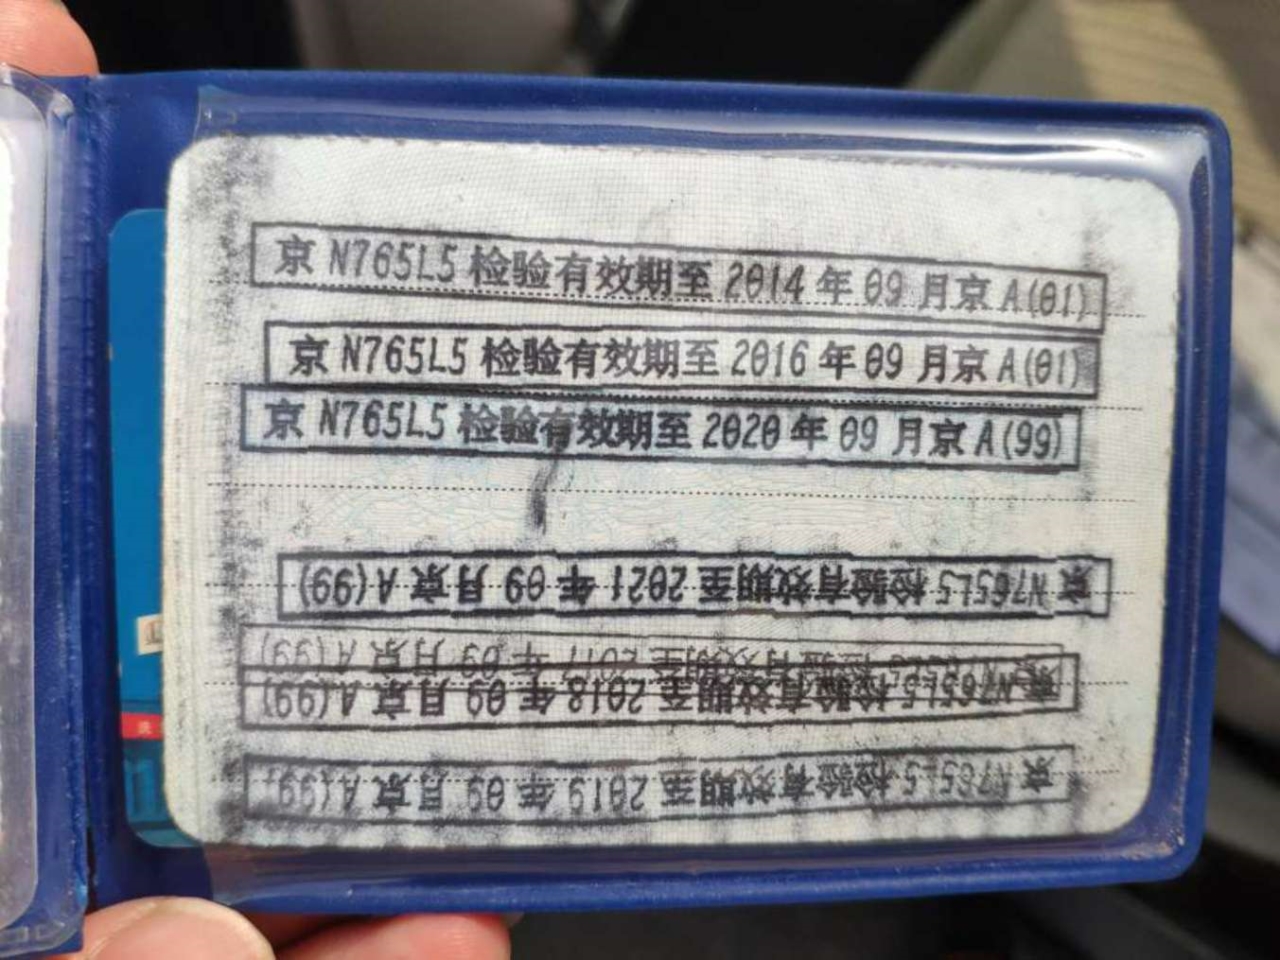 京N765L5检验有效期至2014年09月京A(01)
京N765L5检验有效期至2016年09月京A(01)
京N765L5检验有效期至2020年09月京A(99)
京N765L5检验有效期至2021年09月京A(99)
京N765L5检验有效期至2017年09月京A(99)
京N765L5检验有效期至2018年09月京A(99)
京N765L5检验有效期至2019年09月京A(99)